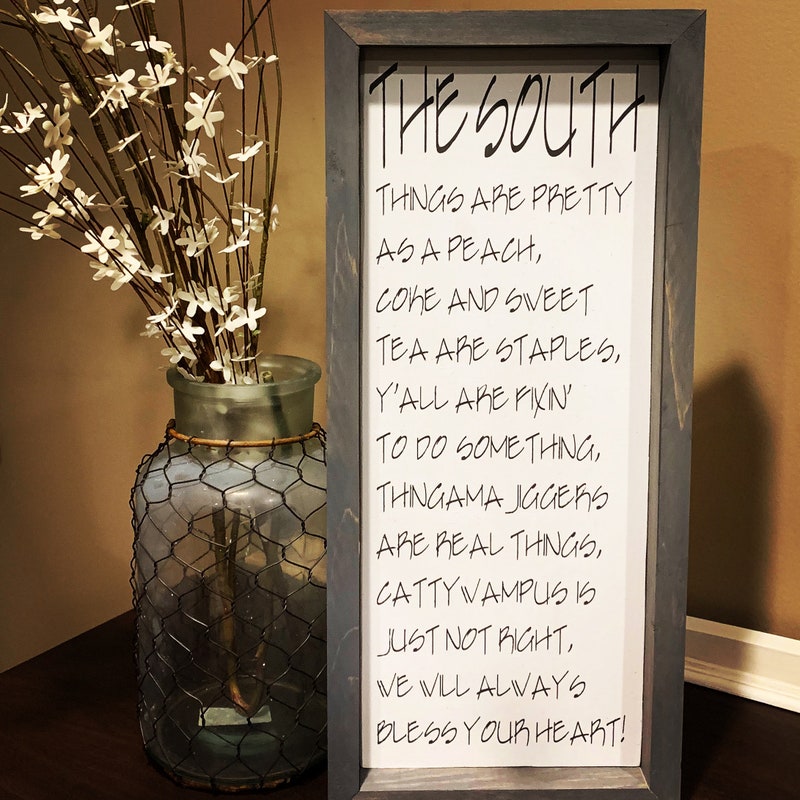 THE SOUTH
THINGS ARE PRETTY
AS A PEACH,
COKE AND SWEET
TEA ARE STAPLES,
Y'ALL ARE FIXIN'
TO DO SOMETHING,
THINGAMAJIGGERS
ARE REAL THINGS,
CATTYWAMPUS IS
JUST NOT RIGHT,
WE WILL ALWAYS
BLESS YOUR HEART!